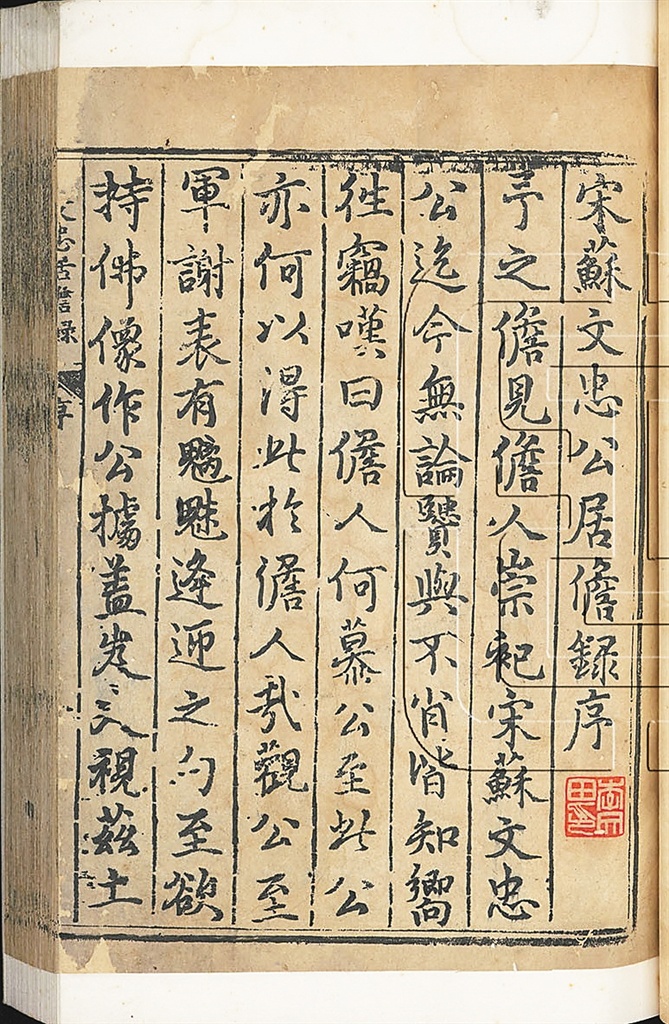 宋蘇文忠公居儋録序
予之儋見儋人崇祀宋蘇文忠
公迄今無論賢與不肖皆知嚮
徃竊嘆曰儋人何慕公至此公
亦何以得此於儋人哉觀公至
軍謝表有魑魅逢迎之句至欲
持佛像作公據葢岌〻視茲土
文忠居儋録 序